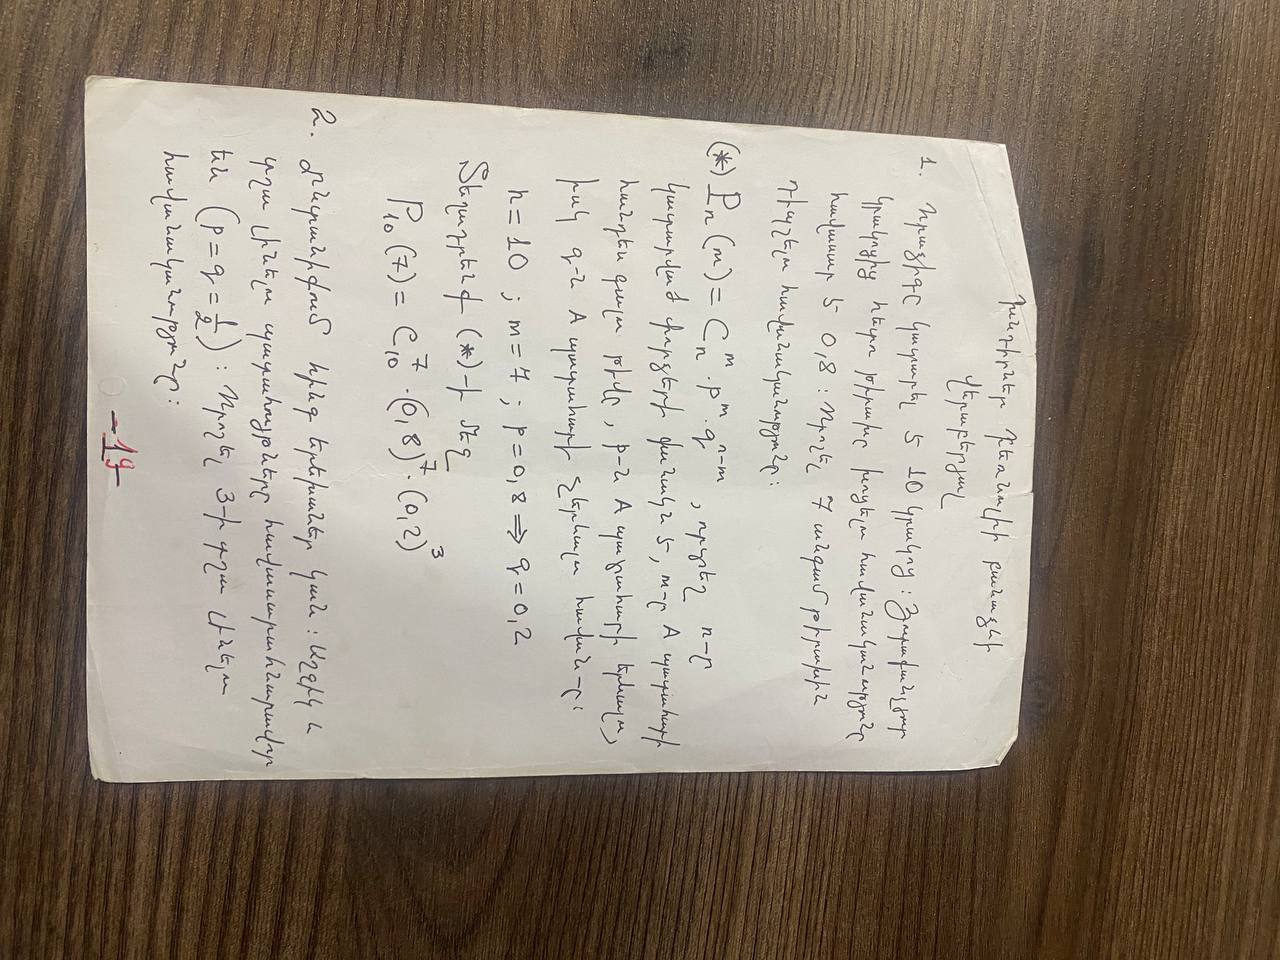 Խնդիրներ Բեռնուլիի բանաձևի
վերաբերյալ
1. Հրաձիգը կատարել է 10 կրակոց: Յուրաքանչյուր
կրակոցից հետո թիրախը խոցելու հավանականությունը
հավասար է 0,8: Որոշել 7 անգամ թիրախին
դիպչելու հավանականությունը:
(*) Pₙ(m) = Cₙᵐ · pᵐ · qⁿ⁻ᵐ, որտեղ n-ը
կատարված փորձերի քանակն է, m-ը A պատահարի
հանդես գալու թիվը, p-ն A պատահարի երևալու,
իսկ q-ն A պատահարի չերևալու հավան-ը:
n = 10 ; m = 7 ; p = 0,8 ⇒ q = 0,2
Տեղադրենք (*)-ի մեջ
P₁₀(7) = C₁₀⁷ · (0,8)⁷ · (0,2)³
2. Ընտանիքում հինգ երեխաներ կան: Աղջիկ և
տղա լինելու պատահույթները հավասարահնարավոր
են (p = q = 1/2): Որոշել 3-ի տղա լինելու
հավանականությունը:
-19-